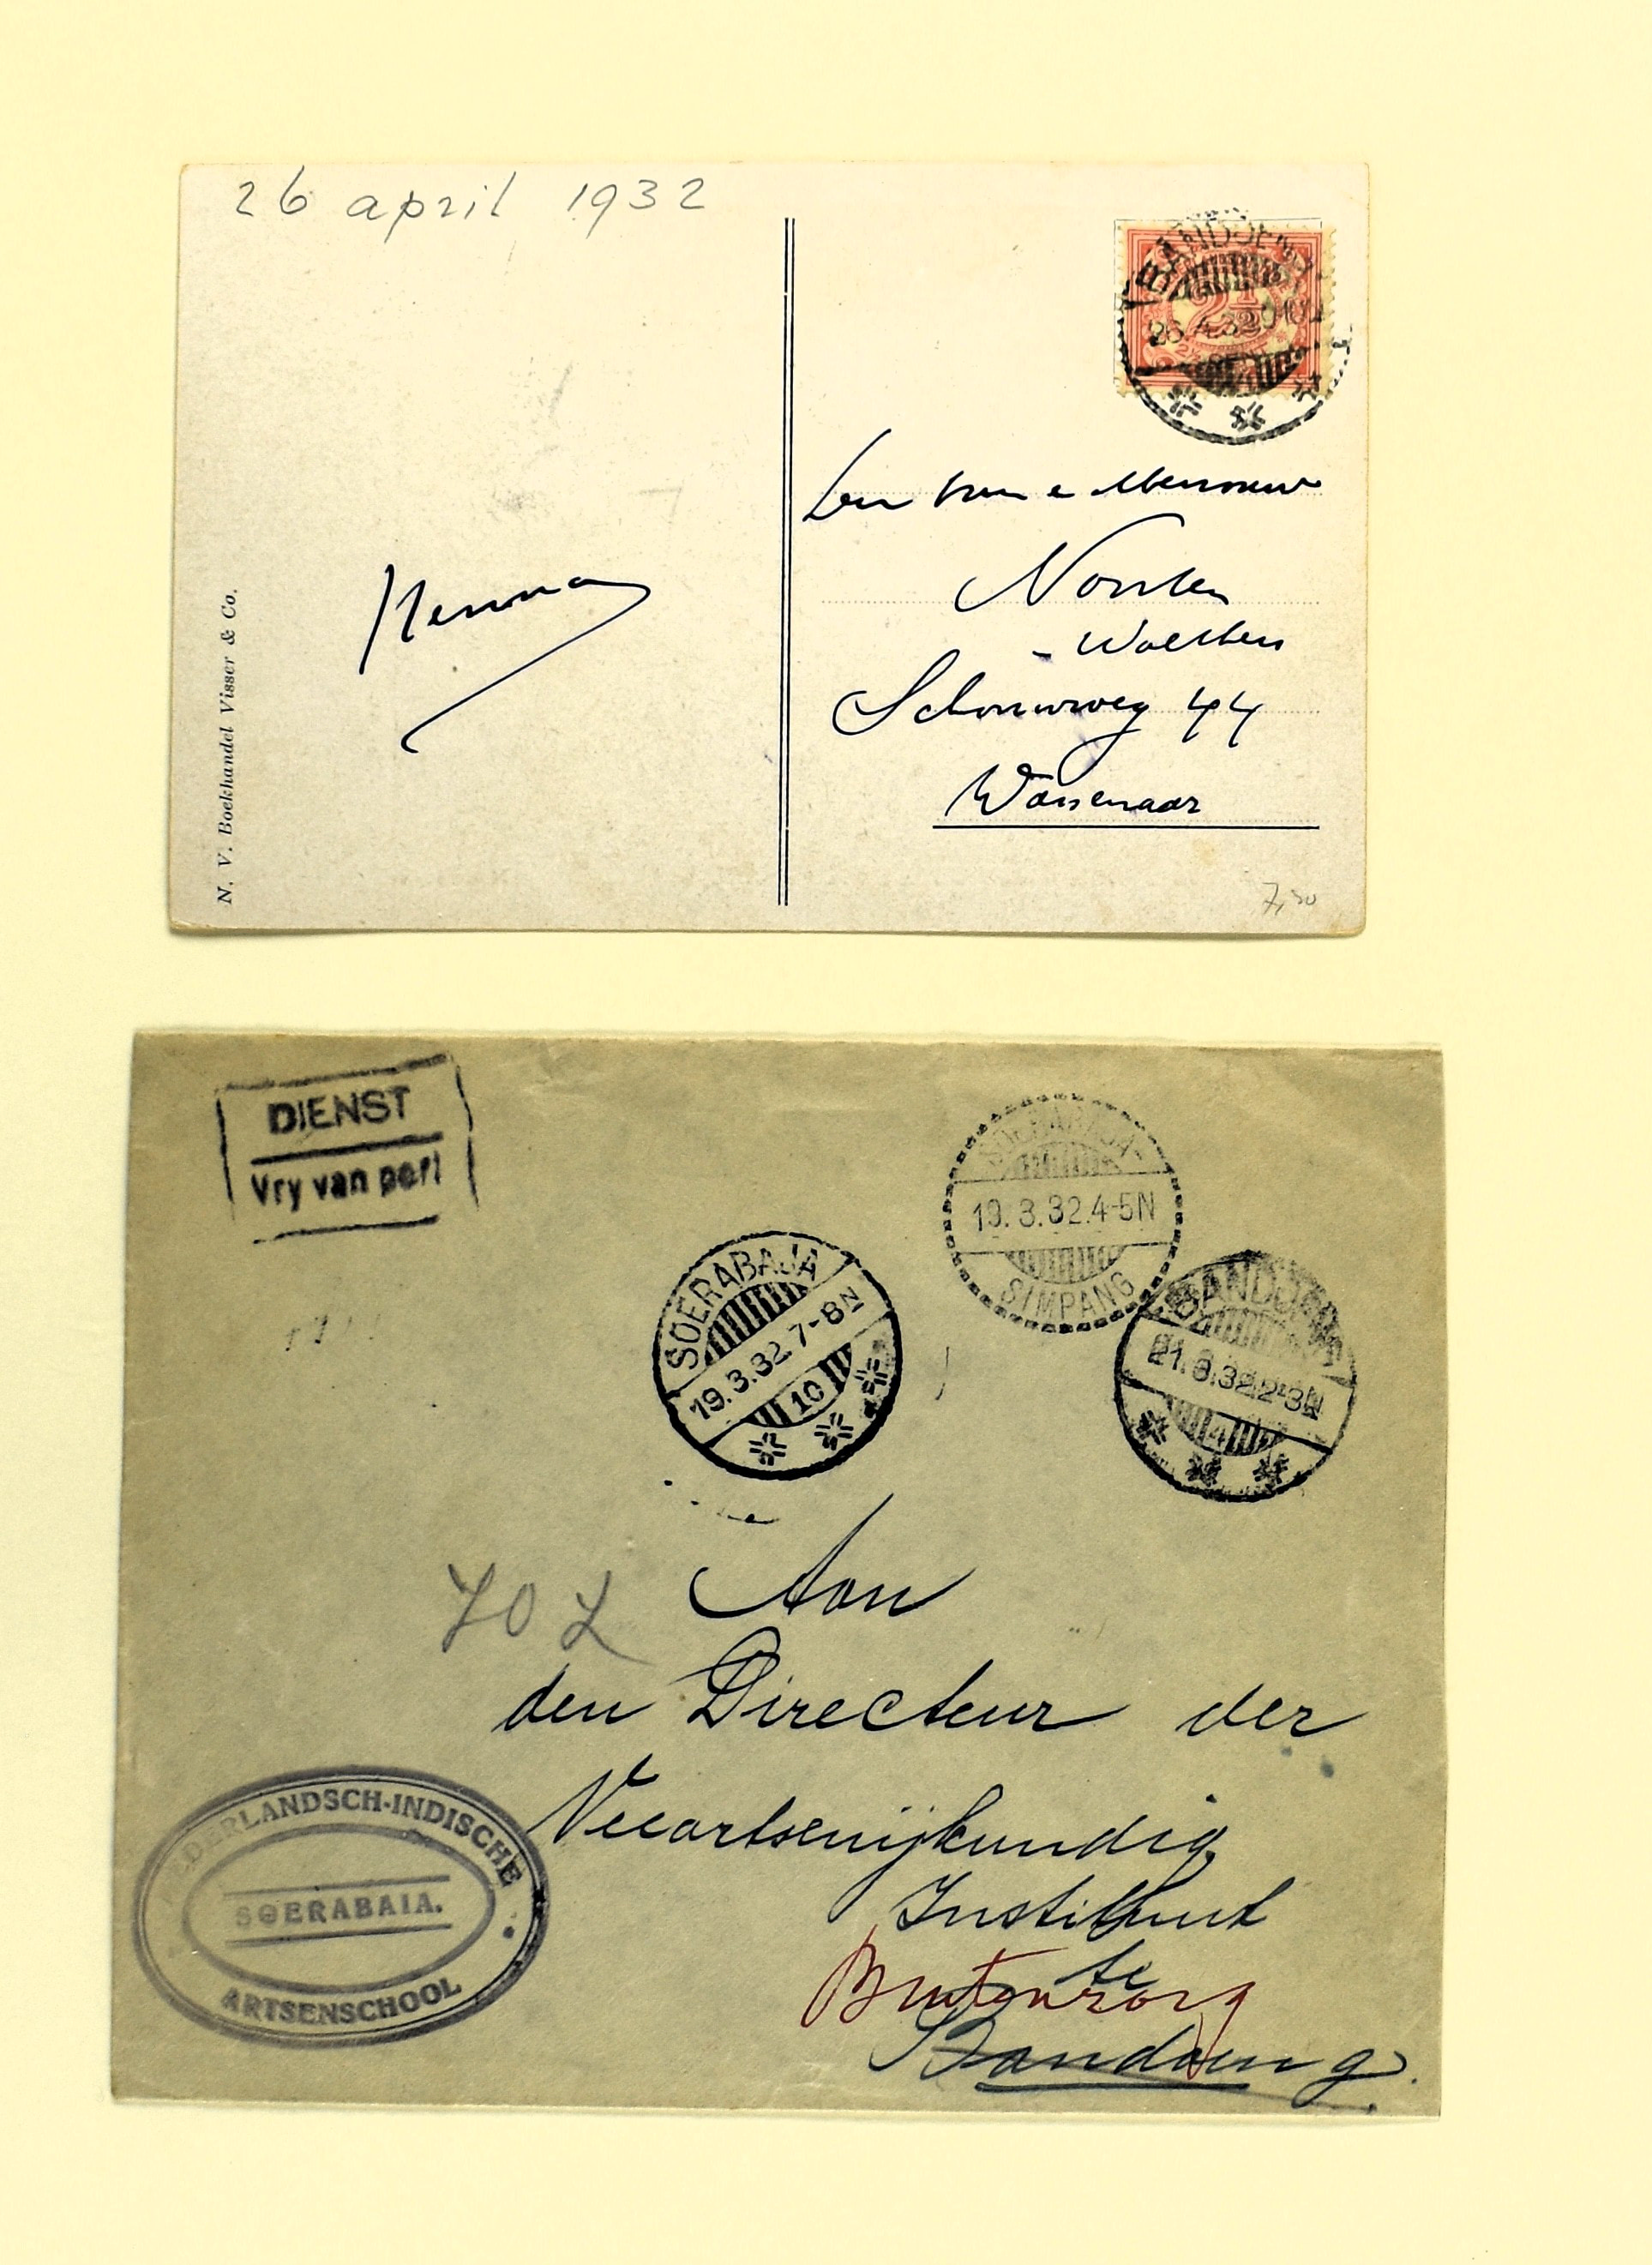 26 april 1932
BANDOENG
26.4.32
2½
N. V. Boekhandel Visser & Co.
Schouwweg 44
Wassenaar
7,50
DIENST
Vry van port
SOERABAJA
19.3.32.4-5N
SIMPANG
SOERABAJA
19.3.32 7-8N
10
BANDOENG
21.3.32.2-3N
4
Aan
den Directeur der
Veeartsenijkundig
Instituut
te
Buitenzorg
Bandoeng.
NEDERLANDSCH-INDISCHE
SOERABAIA.
ARTSENSCHOOL